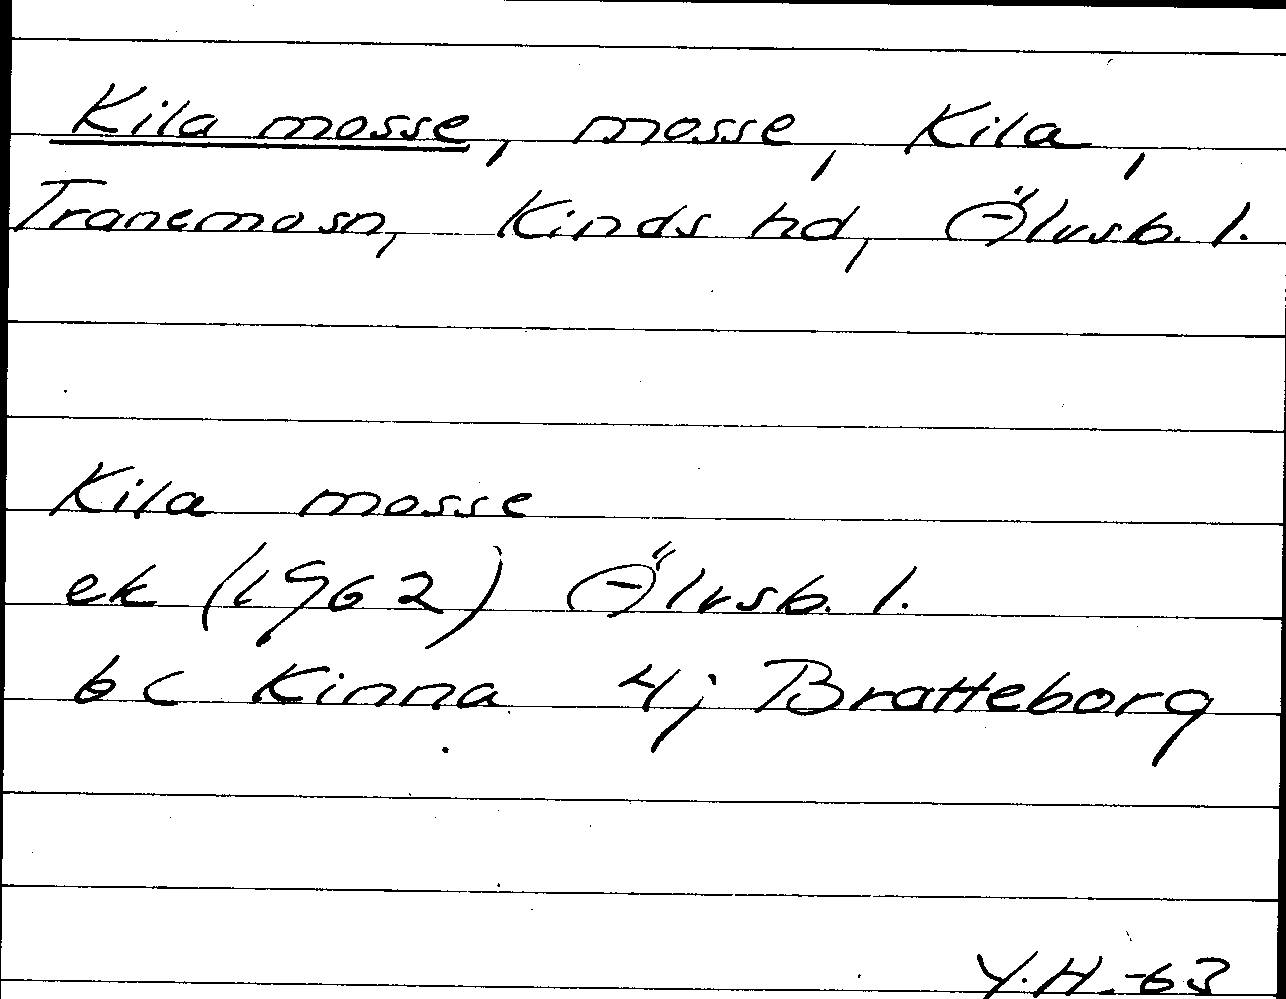 Kila mosse, mosse, Kila,
Tranemo sn, Kinds hd, Älvsb. l.
Kila mosse
ek (1962) Älvsb. l.
6c Kinna 4j Bratteborg
Y.H.-63